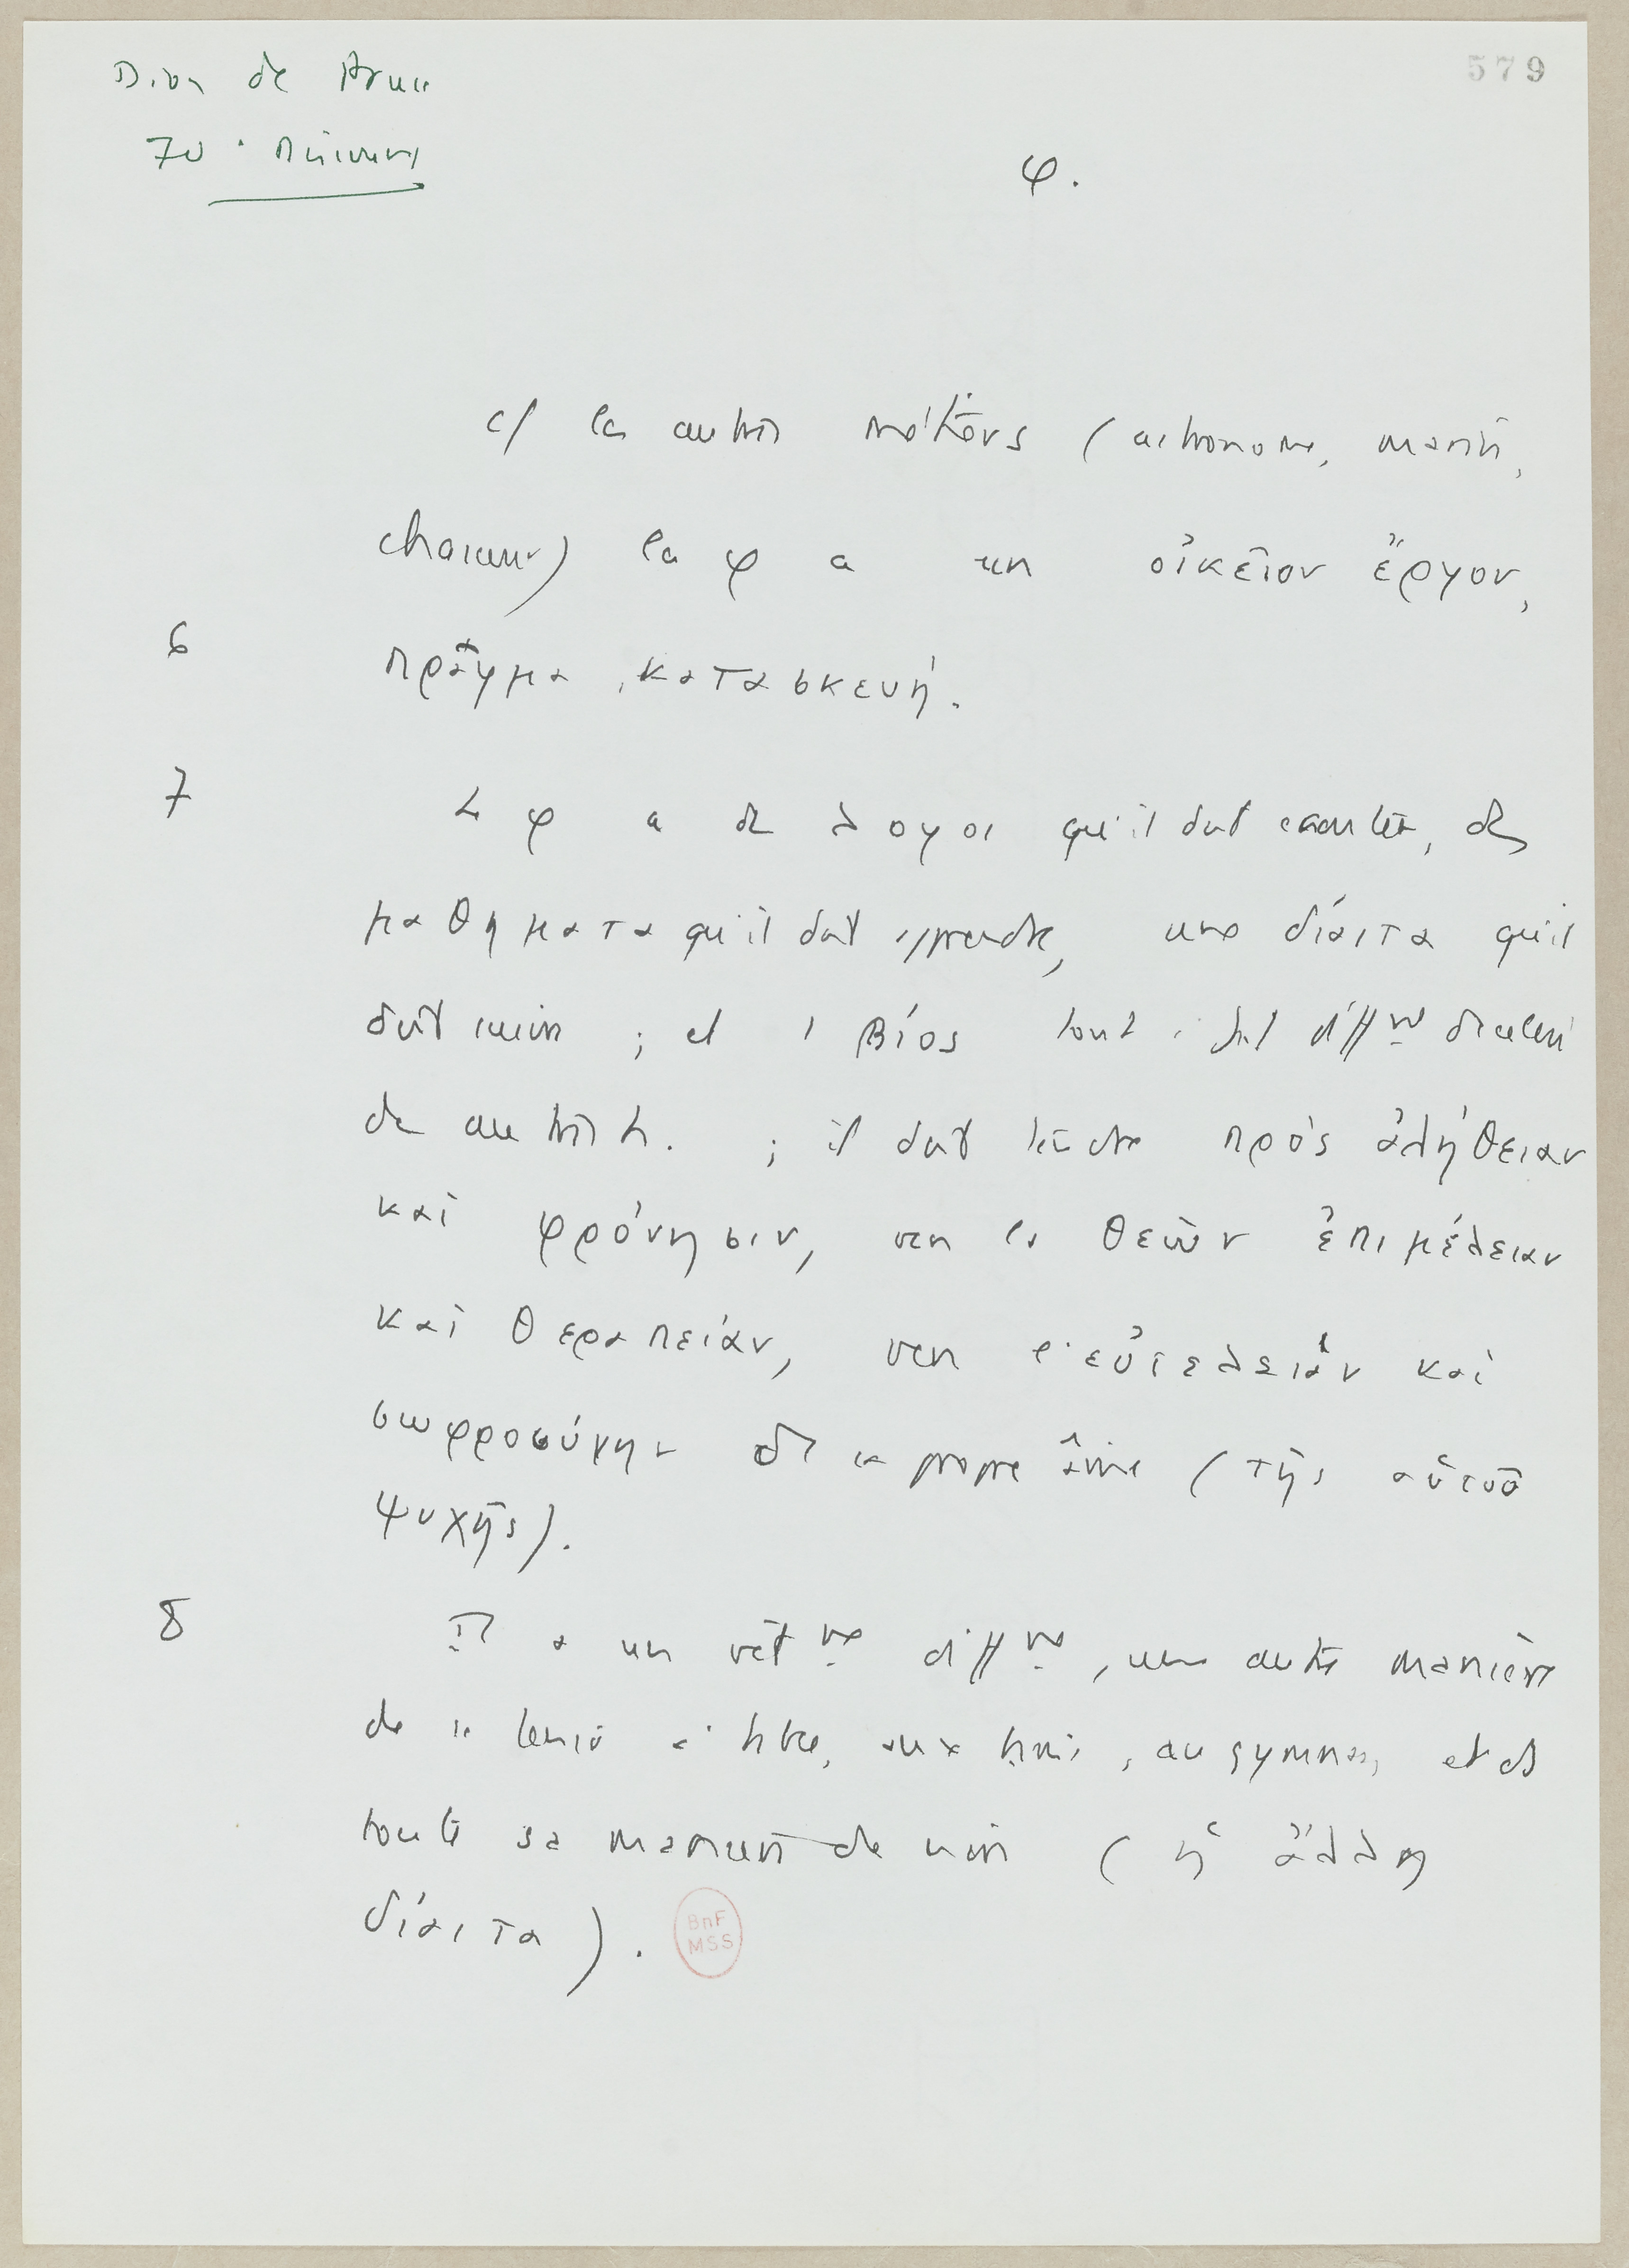 Dion de Pruse
579
70e Discours
φ.
c/ les autres métiers (astronome, marin,
chasseur) la φ a un οἰκεῖον ἔργον,
6 πρᾶγμα, κατασκευή.
7 Le φ a des λογοι qu'il doit écouter, des
μαθηματα qu'il doit apprendre, une δίαιτα qu'il
doit suivre ; et 1 βίος tout à fait diff^nt de celui
des autres h. ; il doit tendre πρὸς ἀλήθειαν
καὶ φρόνησιν, vers la θεῶν ἐπιμέλειαν
καὶ θεραπείαν, vers l'εὐτελειάν καὶ
σωφροσύνην de sa propre âme (τῆς αὑτοῦ
ψυχῆς).
8 Il a un vêt^nt diff^nt, une autre manière
de se tenir à table, aux bains, au gymnase, et ds
toute sa manière de vivre (ἡ ἄλλη
δίαιτα).
BnF
MSS